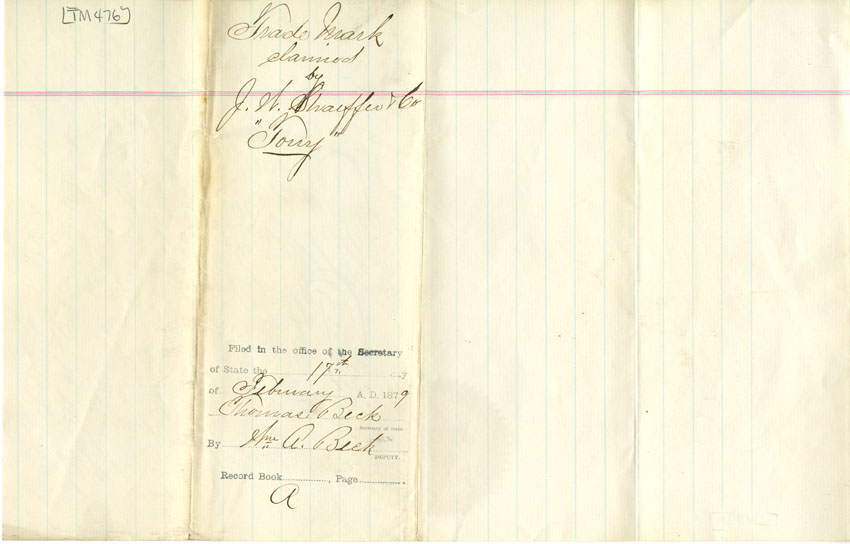 [TM476]
Trade Mark
claimed
by
J. W. Shaeffer & Co
"Tony"
Filed in the office of the Secretary
of State the 17th day
of February A. D. 1879
Thomas Beck
Secretary of State.
By Wm A. Beck
DEPUTY.
Record Book, Page
A